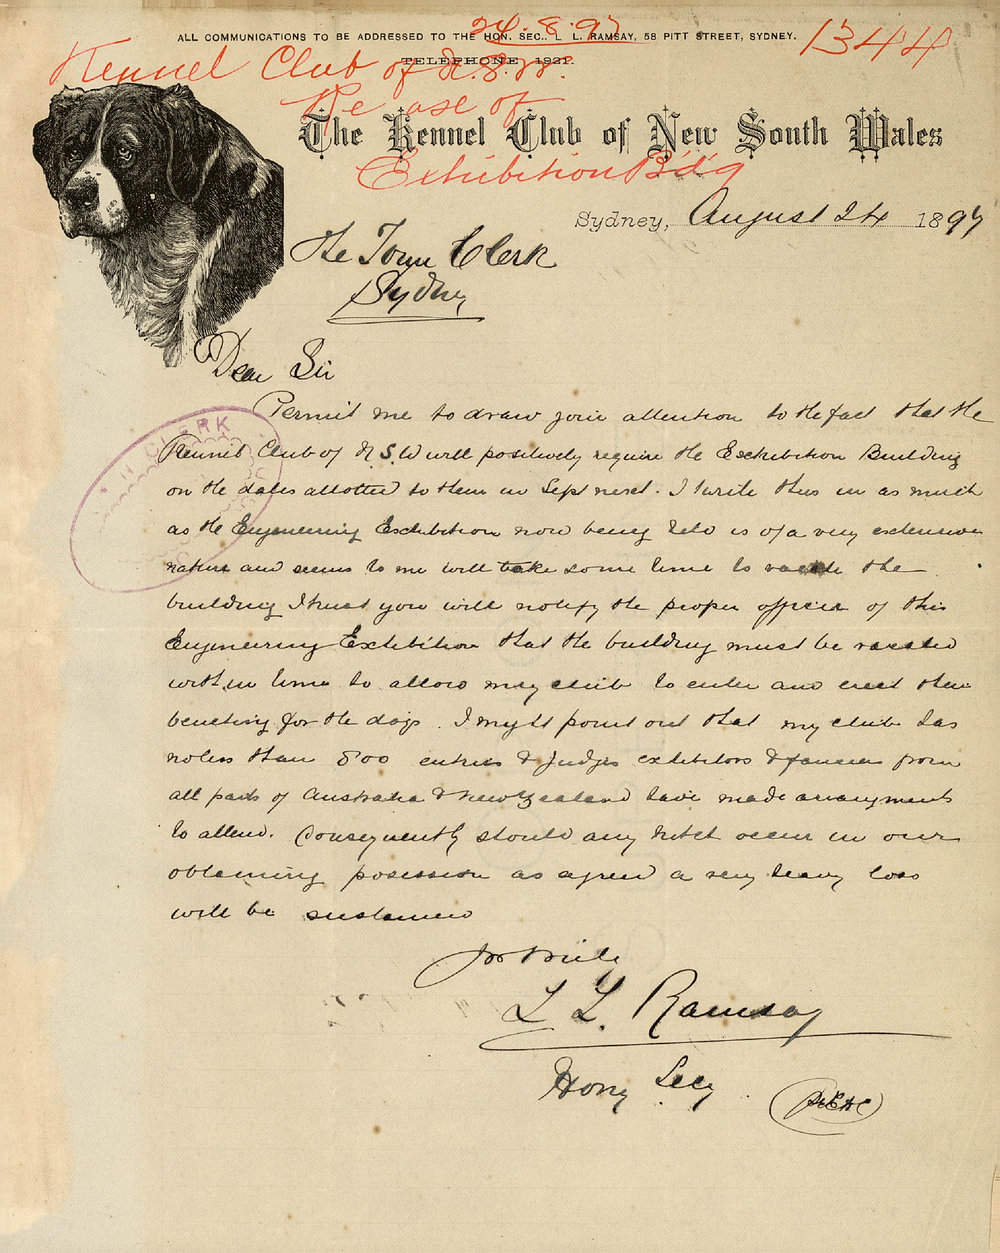 24.8.97
ALL COMMUNICATIONS TO BE ADDRESSED TO THE HON. SEC., L L. RAMSAY, 58 PITT STREET, SYDNEY.
1344
TELEPHONE 1921.
Kennel Club of N.S.W.
Re Lease of
The Kennel Club of New South Wales
Exhibition Bldg
Sydney, August 24 1897
The Town Clerk
Sydney
Dear Sir
Permit me to draw your attention to the fact that the
Kennel Club of N.S.W will positively require the Exhibition Building
on the dates allotted to them in Sept next. I write this in as much
as the Engineering Exhibition now being held is of a very extensive
nature and seems to me will take some time to vacate the
building I trust you will notify the proper officer of this
Engineering Exhibition that the building must be vacated
within time to allow my club to enter and erect their
benching for the dogs. I might point out that my club has
no less than 800 entries & judges exhibitors & fanciers from
all parts of Australia & New Zealand have made arrangements
to attend. Consequently should any hitch occur in our
obtaining possession as agreed a very heavy loss
will be sustained
L L. Ramsay
Hony Secy
CLERK